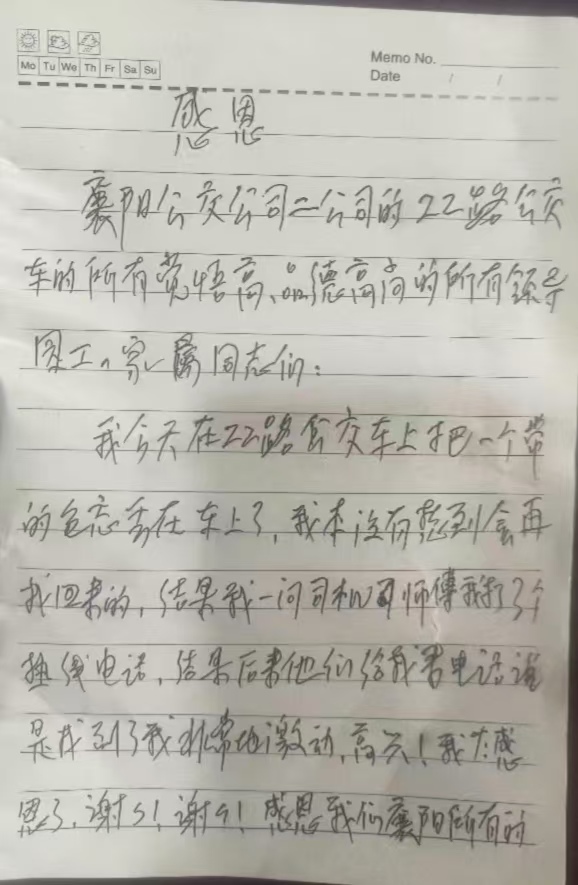 Mo Tu We Th Fr Sa Su
Memo No.
Date / /
感恩
襄阳公交公司二公司的22路公交
车的所有觉悟高、品德高尚的所有领导
员工、家属同志们：
我今天在22路公交车上把一个带
的包忘丢在车上了，我本没有想到会再
找回来的，结果我一问司机师傅我打了个
热线电话，结果后来他们给我来电话说
是找到了我非常地激动，高兴！我太感
恩了，谢谢！谢谢！感恩我们襄阳所有的